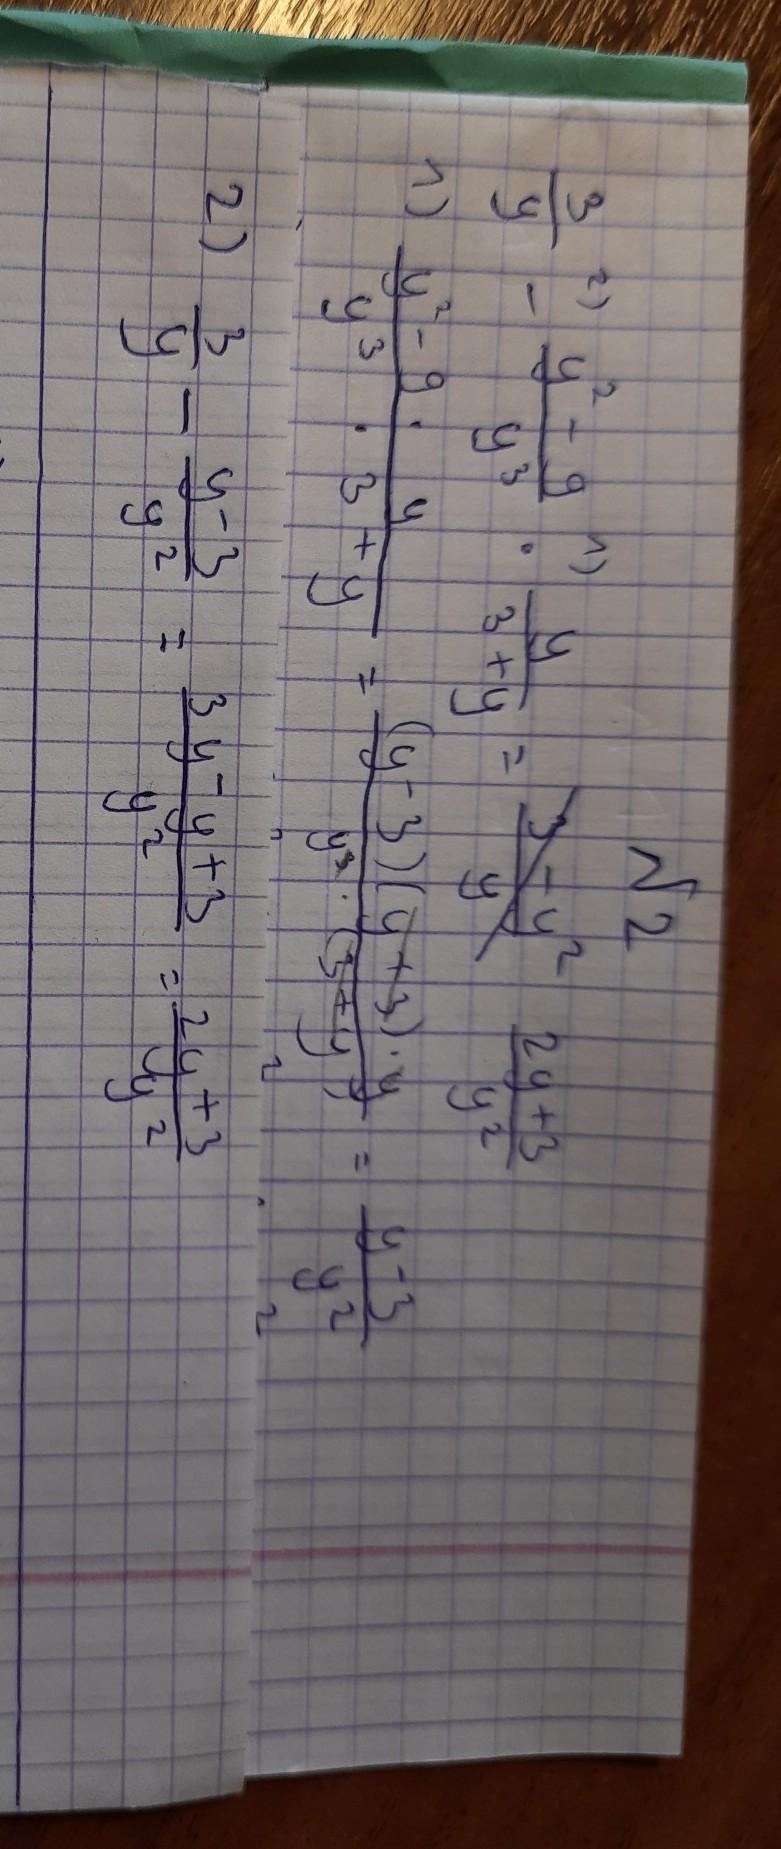 √2
3/y -²⁾ (y² - 9)/y³ ·¹⁾ y/(3 + y) = (2y + 3)/y²
1) (y² - 9 · y)/(y³ · 3 + y) = ((y - 3)(y + 3) · y)/(y³ · (3 + y)) = (y - 3)/y²
2) 3/y - (y - 3)/y² = (3y - y + 3)/y² = (2y + 3)/y²